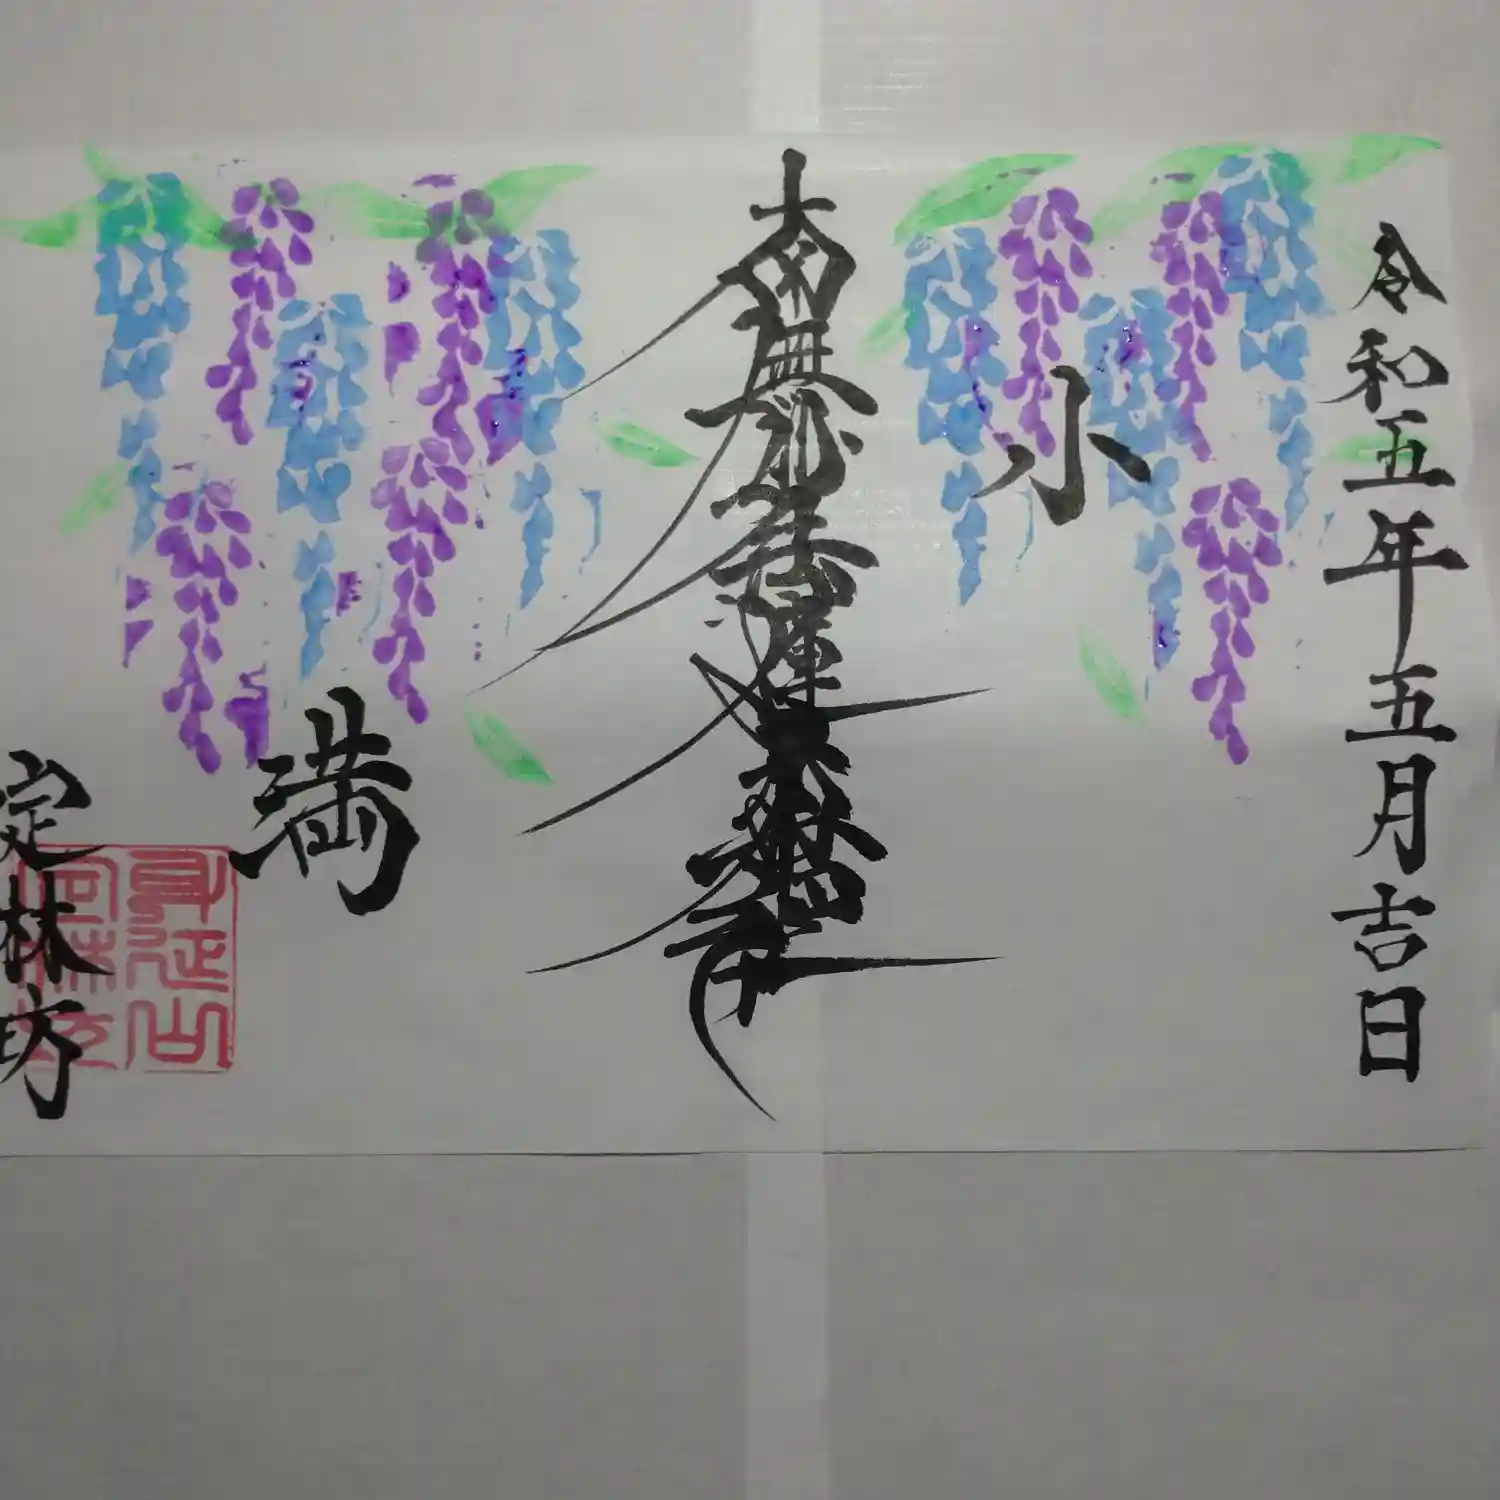 令和五年五月吉日
小
南無妙法蓮華経
満
定林坊
身延山
定林坊